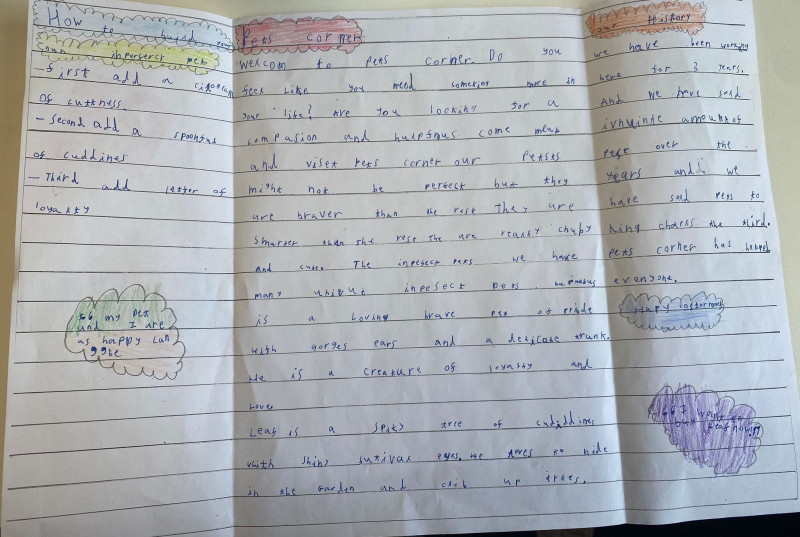 How to build your
own inperferct pet
- first add a
of cuttness
- Second add a spoonful
of cuddines
- Third add letter of
loyalty
66 my pet
and I are
as happy can
99be
Pets corner
Welcom to pets corner Do you
feel like you need someting more in
your life? Are you locking for a
compasion and
and viset Pets corner our Petsts
might not be perfect but they
are braver than the rest They are
Smarter than the rest The are really chupy
and cute. The inpefect pets we have
many unique inpefect pets.
is a loving brave pet of pride
with gorges ears and a delicate trunk.
He is a creature of loyalty and
love.
Leaf is a spiky tree of
whith shiny eyes. He loves to hide
in the garden and clib up trees.
our History
we have been working
here for 3 years.
And we have sold
amount of
pets over the
years and we
have sold pets to
king charls the third.
pets corner has helped
everyone.
Hapy
66 I want to
buy